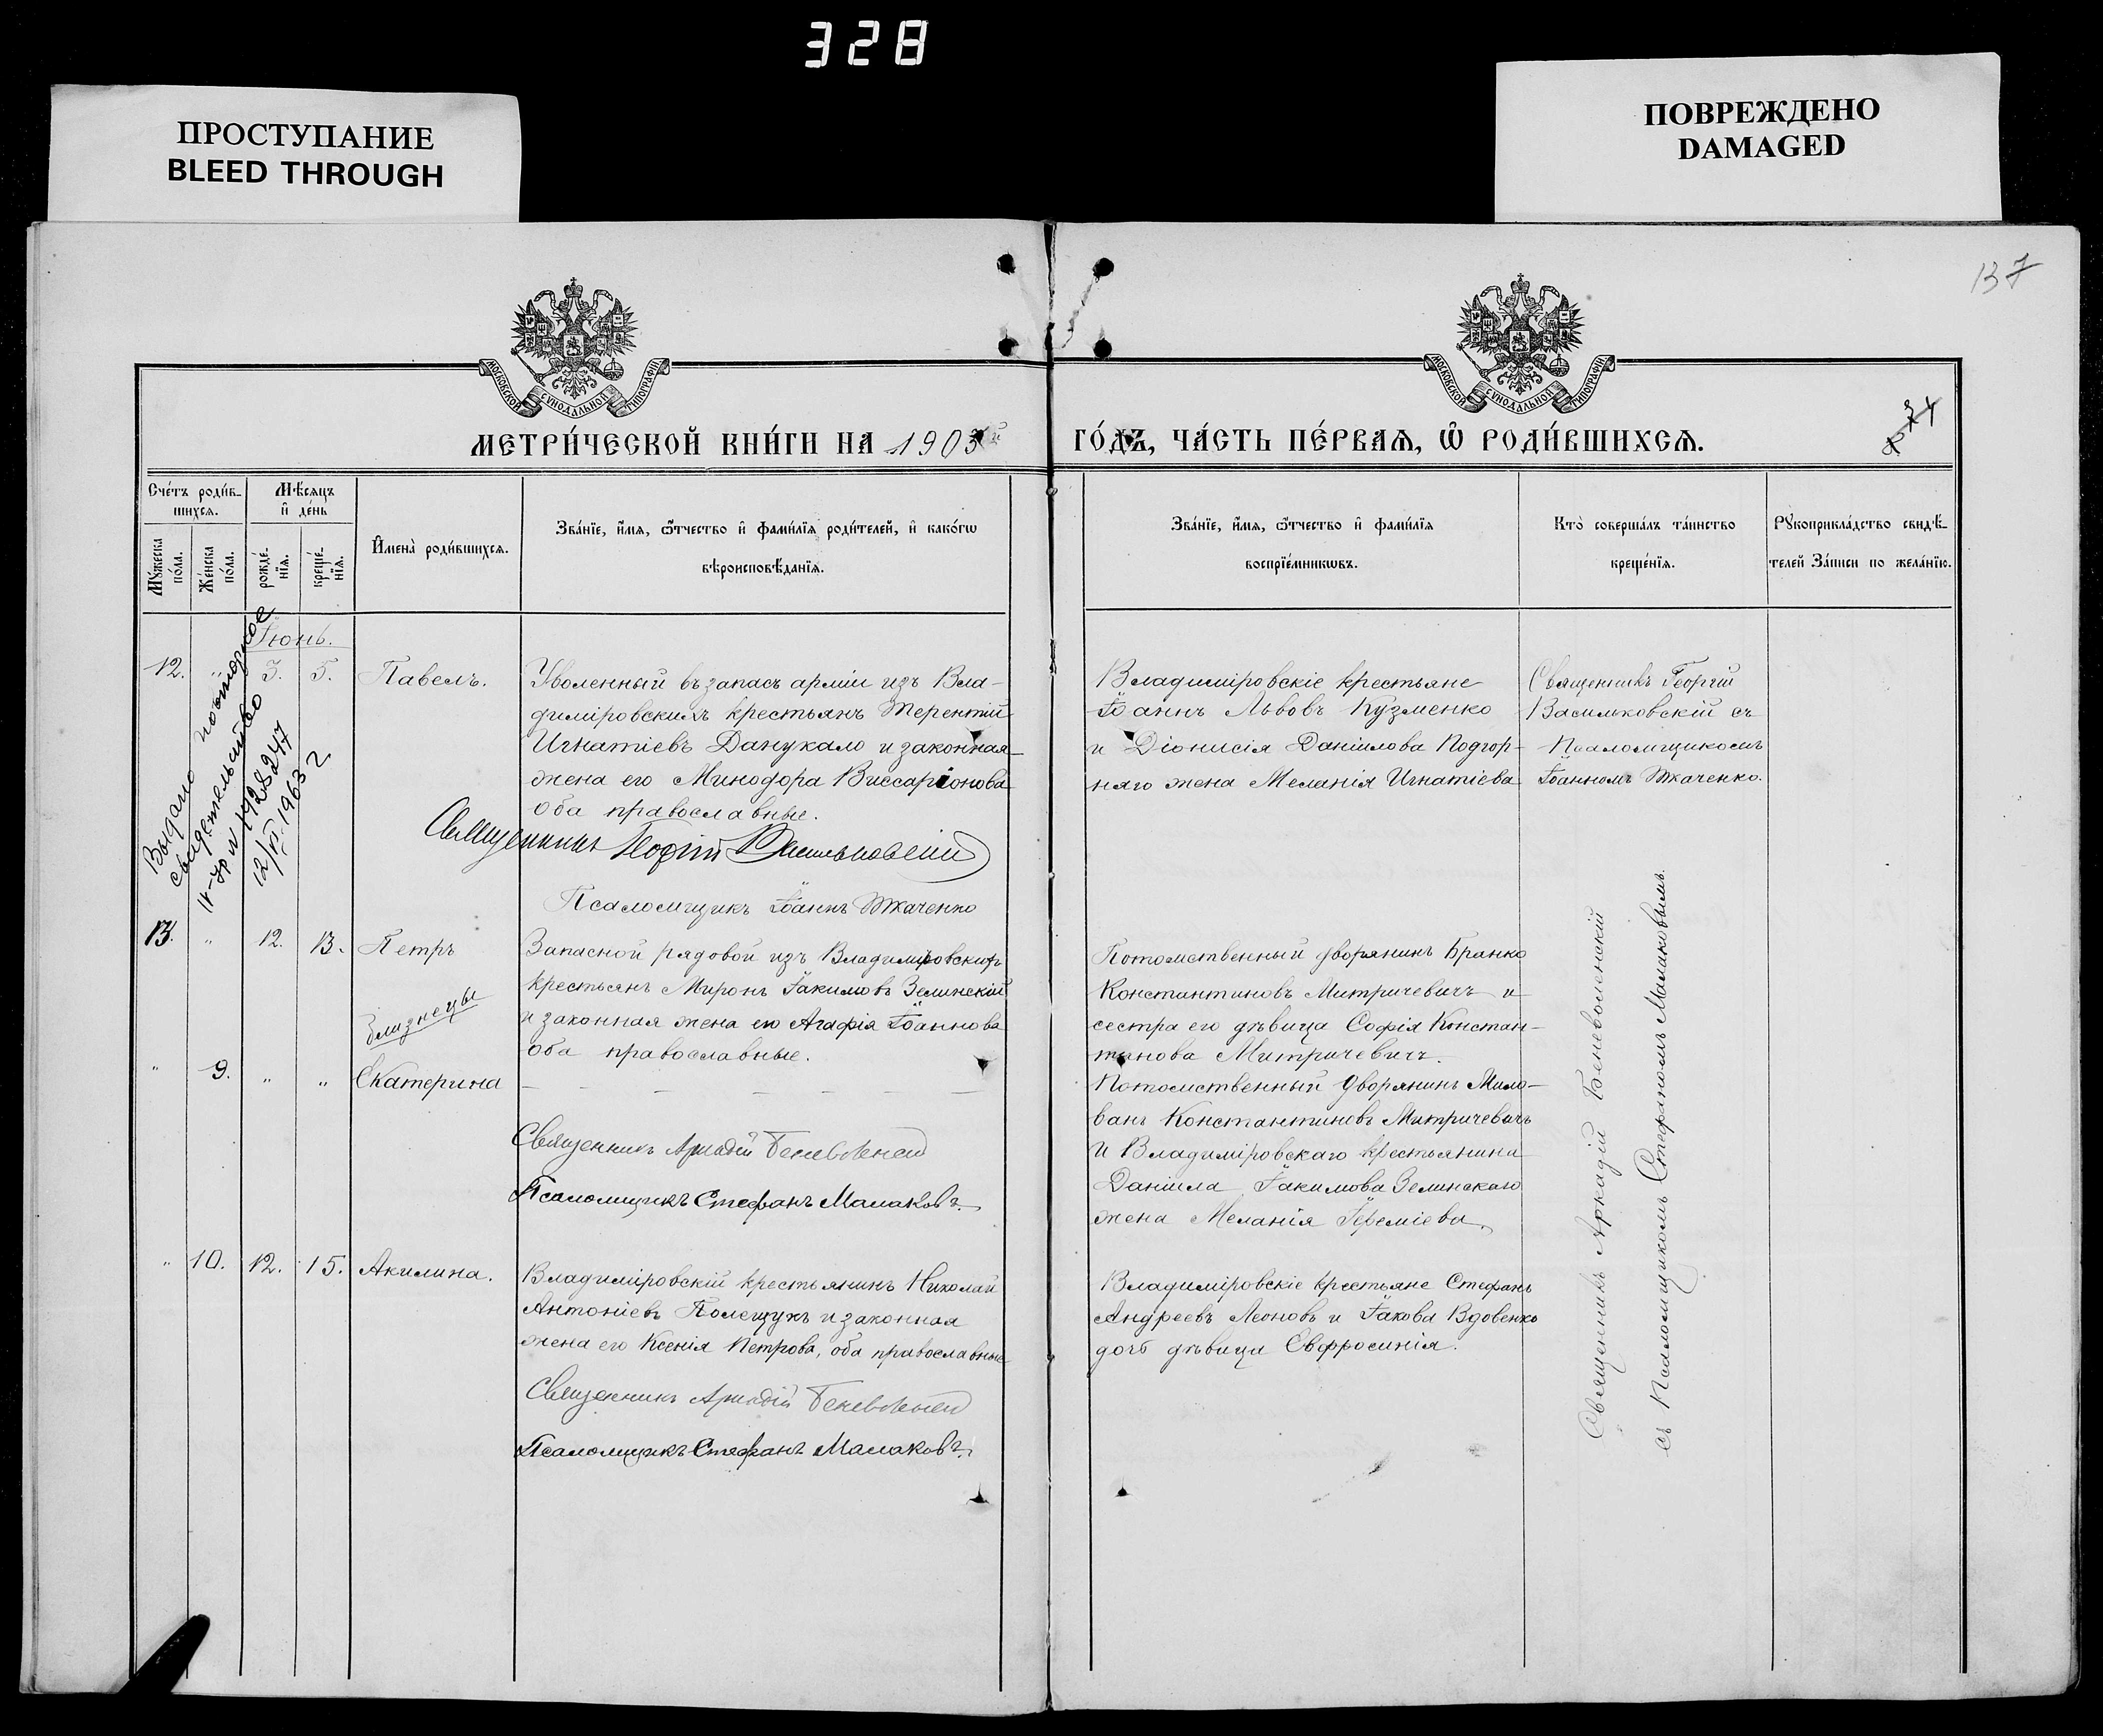 328
ПРОСТУПАНИЕ
BLEED THROUGH
ПОВРЕЖДЕНО
DAMAGED
137
МОСКОВСКОЙ СѴНОДАЛЬНОЙ ТИПОГРАФІИ
МОСКОВСКОЙ СѴНОДАЛЬНОЙ ТИПОГРАФІИ
МЕТРИ́ЧЕСКОЙ КНИ́ГИ НА 1903й ГО́ДЪ, ЧА́СТЬ ПЕ́РВАѦ, Ѡ҆ РОДИ́ВШИХСѦ.
34
Сче́тъ роди́в-
шихсѧ.
Мѣ́сѧцъ
и҆ де́нь
Мꙋ́жеска
по́ла.
Же́нска
по́ла.
рожде́-
нїѧ.
креще́-
нїѧ.
И҆мена̀ роди́вшихсѧ.
Зва́нїе, и҆́мѧ, ѻ҆́тчество и҆ фами́лїѧ роди́телей, и҆ како́гѡ
вѣроисповѣ́данїѧ.
Зва́нїе, и҆́мѧ, ѻ҆́тчество и҆ фами́лїѧ
воспрїе́мникѡвъ.
Кто̀ соверша́лъ та́инство
креще́нїѧ.
Рꙋкоприкла́дство свидѣ́-
телей За́писи по жела́нїю.
Выдано повторное
свидетельство
№ 1928247
12/VI-1963 г
Іюнь.
12. " 3. 5. Павелъ.
Уволенный въ запасъ арміи изъ Вла-
димiровскихъ крестьянъ Терентій
Игнатіевъ Данукало и законная
жена его Минодора Виссаріонова
оба православные.
Священникъ Георгій Васильковскій
Псаломщикъ Іоаннъ Ткаченко
Владиміровскіе крестьяне
Іоаннъ Львовъ Кузменко
и Діонисія Даніилова Подгор-
няго жена Меланія Игнатіева
Священникъ Георгій
Васильковскій съ
Псаломщикомъ
Іоанномъ Ткаченко.
13. " 12. 13. Петръ
Близнецы
Запасной рядовой изъ Владиміровскихъ
крестьянъ Миронъ Іакимовъ Зелинскій
и законная жена его Агафія Іоаннова
оба православные.
Потомственный дворянинъ Бранко
Константиновъ Митричевичъ и
сестра его дѣвица Софія Констан-
тинова Митричевичъ.
" 9. " " Екатерина
— — — — — —
Священникъ Аркадій Беневоленскій
Псаломщикъ Стефанъ Малаковъ.
Потомственный дворянинъ Мило-
ванъ Константиновъ Митричевичъ
и Владиміровскаго крестьянина
Даніила Іакимова Зелинскаго
жена Меланія Іереміева.
" 10. 12. 15. Акилина.
Владиміровскій крестьянинъ Николай
Антоніевъ Полещукъ и законная
жена его Ксенія Петрова, оба православные
Священникъ Аркадій Беневоленскій
Псаломщикъ Стефанъ Малаковъ.
Владиміровскіе крестьяне Стефанъ
Андреевъ Леоновъ и Іакова Вдовенко
дочь дѣвица Евфросинія.
Священникъ Аркадій Беневоленскій
съ Псаломщикомъ Стефаномъ Малаковымъ.